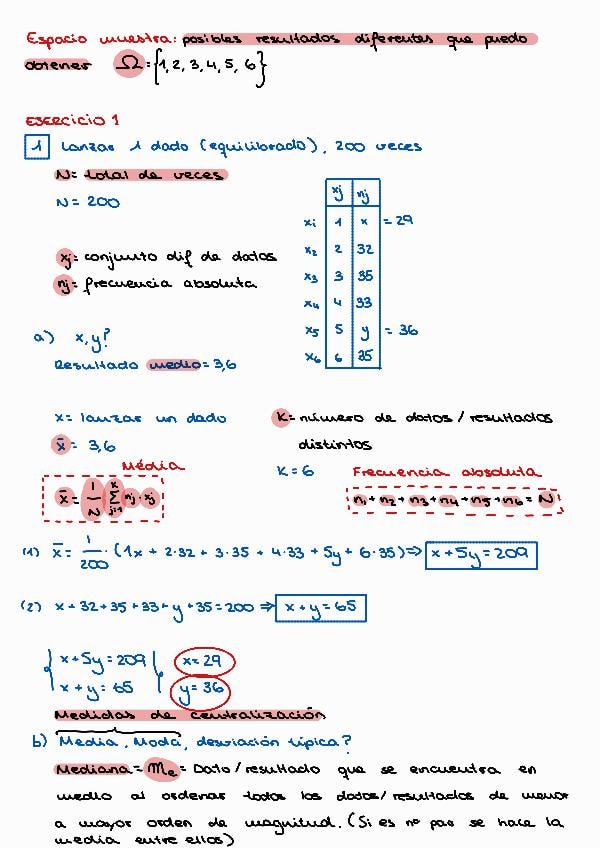 Espacio muestra: posibles resultados diferentes que puedo
obtener Ω={1, 2, 3, 4, 5, 6}
EJERCICIO 1
1 Lanzar 1 dado (equilibrado), 200 veces
N= total de veces
N = 200
xj nj
xi 1 x = 29
x2 2 32
x3 3 35
x4 4 33
x5 5 y = 36
x6 6 35
xj = conjunto dif de datos
nj = frecuencia absoluta
a) x, y?
Resultado medio = 3,6
x = lanzar un dado
x̄ = 3,6
K = número de datos / resultados
distintos
K = 6
Média
x̄ = 1/N Σ_{j=1}^{K} nj · xj
Frecuencia absoluta
n1 + n2 + n3 + n4 + n5 + n6 = N
(1) x̄ = 1/200 · (1x + 2·32 + 3·35 + 4·33 + 5y + 6·35) ⇒ x + 5y = 209
(2) x + 32 + 35 + 33 + y + 35 = 200 ⇒ x + y = 65
{ x + 5y = 209 x = 29
x + y = 65 } y = 36
Medidas de centralización
b) Media, Moda, desviación típica?
Mediana = Me = Dato / resultado que se encuentra en
medio al ordenar todos los datos / resultados de menor
a mayor orden de magnitud. (Si es nº par se hace la
media entre ellos)